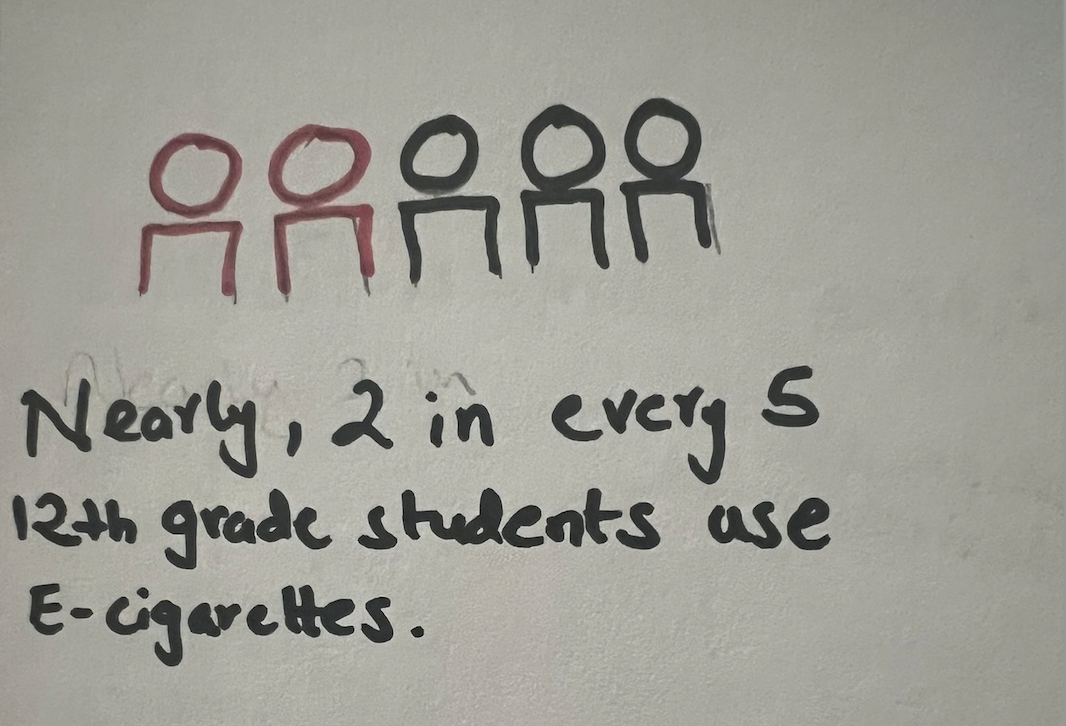 Nearly, 2 in every 5
12th grade students use
E-cigarettes.